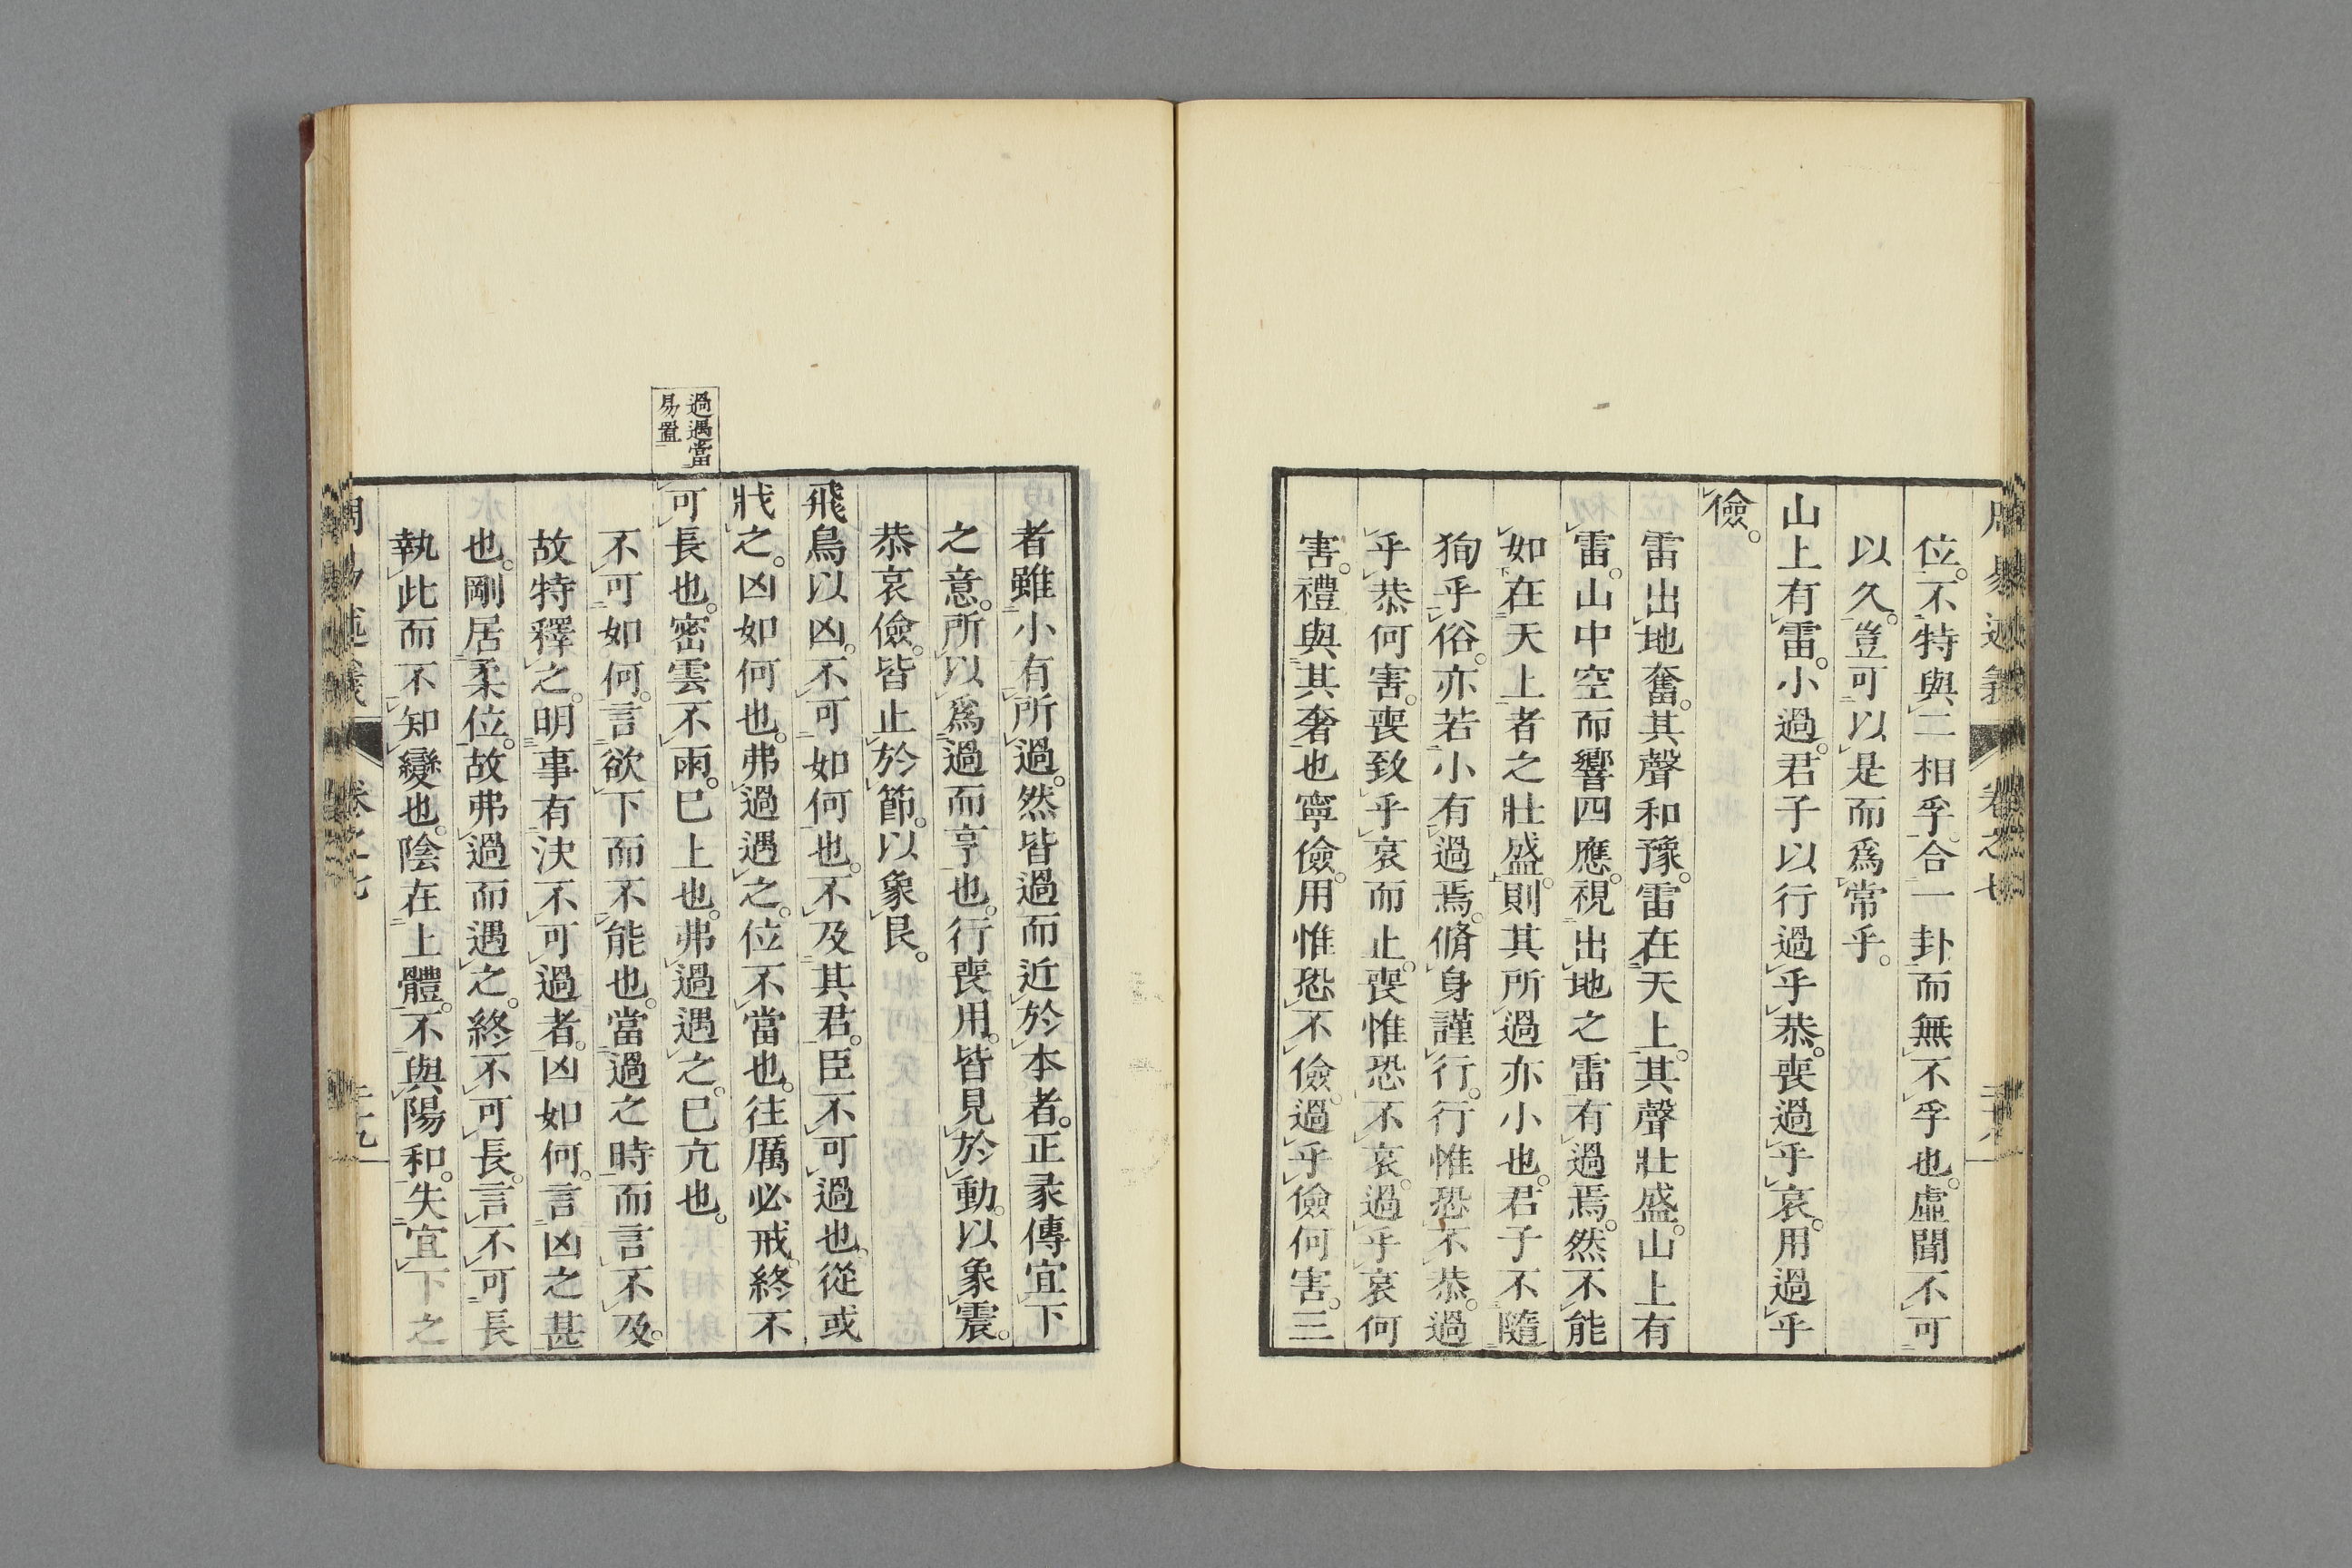 周易述義　卷之七　二十八
位。不特與二相孚。合一卦而無不孚也。虛聞不可
以久。豈可以是而爲常乎。
山上有雷。小過。君子以行過乎恭。喪過乎哀。用過乎
儉。
雷出地奮。其聲和豫。雷在天上。其聲壯盛。山上有
雷。山中空而響四應。視出地之雷有過焉。然不能
如在天上者之壯盛。則其所過亦小也。君子不隨
狥乎俗。亦若小有過焉。脩身謹行。行惟恐不恭。過
乎恭何害。喪致乎哀而止。喪惟恐不哀。過乎哀何
害。禮與其奢也寧儉。用惟恐不儉。過乎儉何害。三
者雖小有所過。然皆過而近於本者。正彖傳宜下
之意。所以爲過而亨也。行喪用。皆見於動。以象震。
恭哀儉。皆止於節。以象艮。
飛鳥以凶。不可如何也。不及其君。臣不可過也。從或
戕之。凶如何也。弗過遇之。位不當也。往厲必戒。終不
過遇當
易置
可長也。密雲不雨。已上也。弗過遇之。已亢也。
不可如何。言欲下而不能也。當過之時而言不及。
故特釋之。明事有決不可過者。凶如何。言凶之甚
也。剛居柔位。故弗過而遇之。終不可長。言不可長
執此而不知變也。陰在上體。不與陽和。失宜下之
周易述義　卷之七　二十九